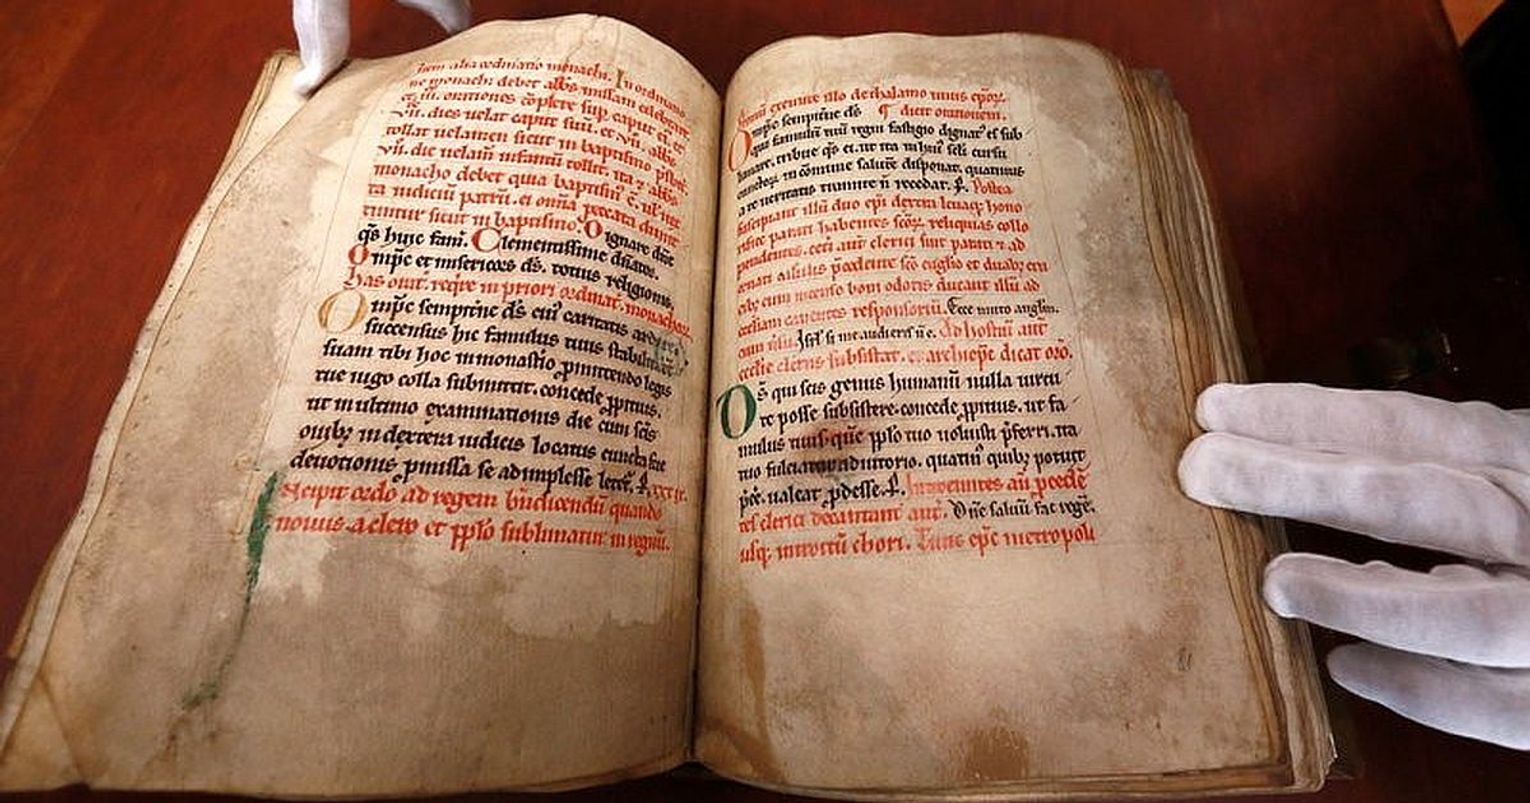 Item alia ordinatio monachi. In ordinatione
ne monachi debet abbs missam celebrare
et .iii. orationes cōplere sup caput ei. et
.vii. dies uelet caput suū. et .vii. abbs
tollat uelamen sicut in baptismo psbit.
.vii. die uelam infantū tollit. ita & abbs
monacho debet quia baptismꝰ ē.
ta iudiciū patrū. et omnia peccata dimit
tuntur sicut in baptismo. Dignare dn̄e
qs huic fam̄. Clementissime dn̄ator.
Omps et misericors ds̄. totius religionis.
has om̄s. reqre in priori ordinat. monachor.
Omps sempitne ds̄ cui caritatis ardore
succensus hic famulus tuus stabilitatē
suam tibi hoc in monastio ꝓmittendo legis
tue iugo colla submittit. concede ꝓpitius.
ut in ultimo examinationis die cum scīs
omībꝫ in dextera iudicis locatus cuncta sue
deuotionis ꝓmissa se adimplesse letet̄. P.
Incipit ordo ad regem bn̄dicendū quando
nouus a clero et pplo sublimatur in regnū.
exeunte illo de thalamo unus epōꝝ
Omps sempitne ds̄ ¶ dicit orationem.
qui famulū tuū regni fastigio dignatꝰ es sub
limare. tribue qs ei. ut ita in huiꝰ scli cursu
in cōmune salute disponat. quatinus
a te ueritatis tramite n̄ recedat. P. Postea
suscipiant illū duo epi dextra leuaqꝫ hono
rifice parati habentes scōꝝ reliquias collo
pendentes. ceti aūt clerici sint parati & ad
casulis p̄cedente scō euglio et duabꝫ cru
cibꝫ cum incenso boni odoris ducant illū ad
eccliam canentes responsoriū. Ecce mitto anglm.
cum ūsu. Isrl si me audieris n̄ e. Ad hostiū aūt
ecclie clerus subsistat. et archiepc̄ dicat orō.
Ds̄ qui scis genus humanū nulla uirtu
te posse subsistere. concede ꝓpitius. ut fa
mulus tuus que pplo tuo uoluisti p̄ferri. ita
tuo fulciatur adiutorio. quatinꝰ quibꝫ potuit
p̄ee. ualeat ꝓdesse. P. Introeuntes aū p̄cedē
tes clerici decantant aūt. Dn̄e saluū fac regē.
usqꝫ introitū chori. Tunc epc̄ metropoli